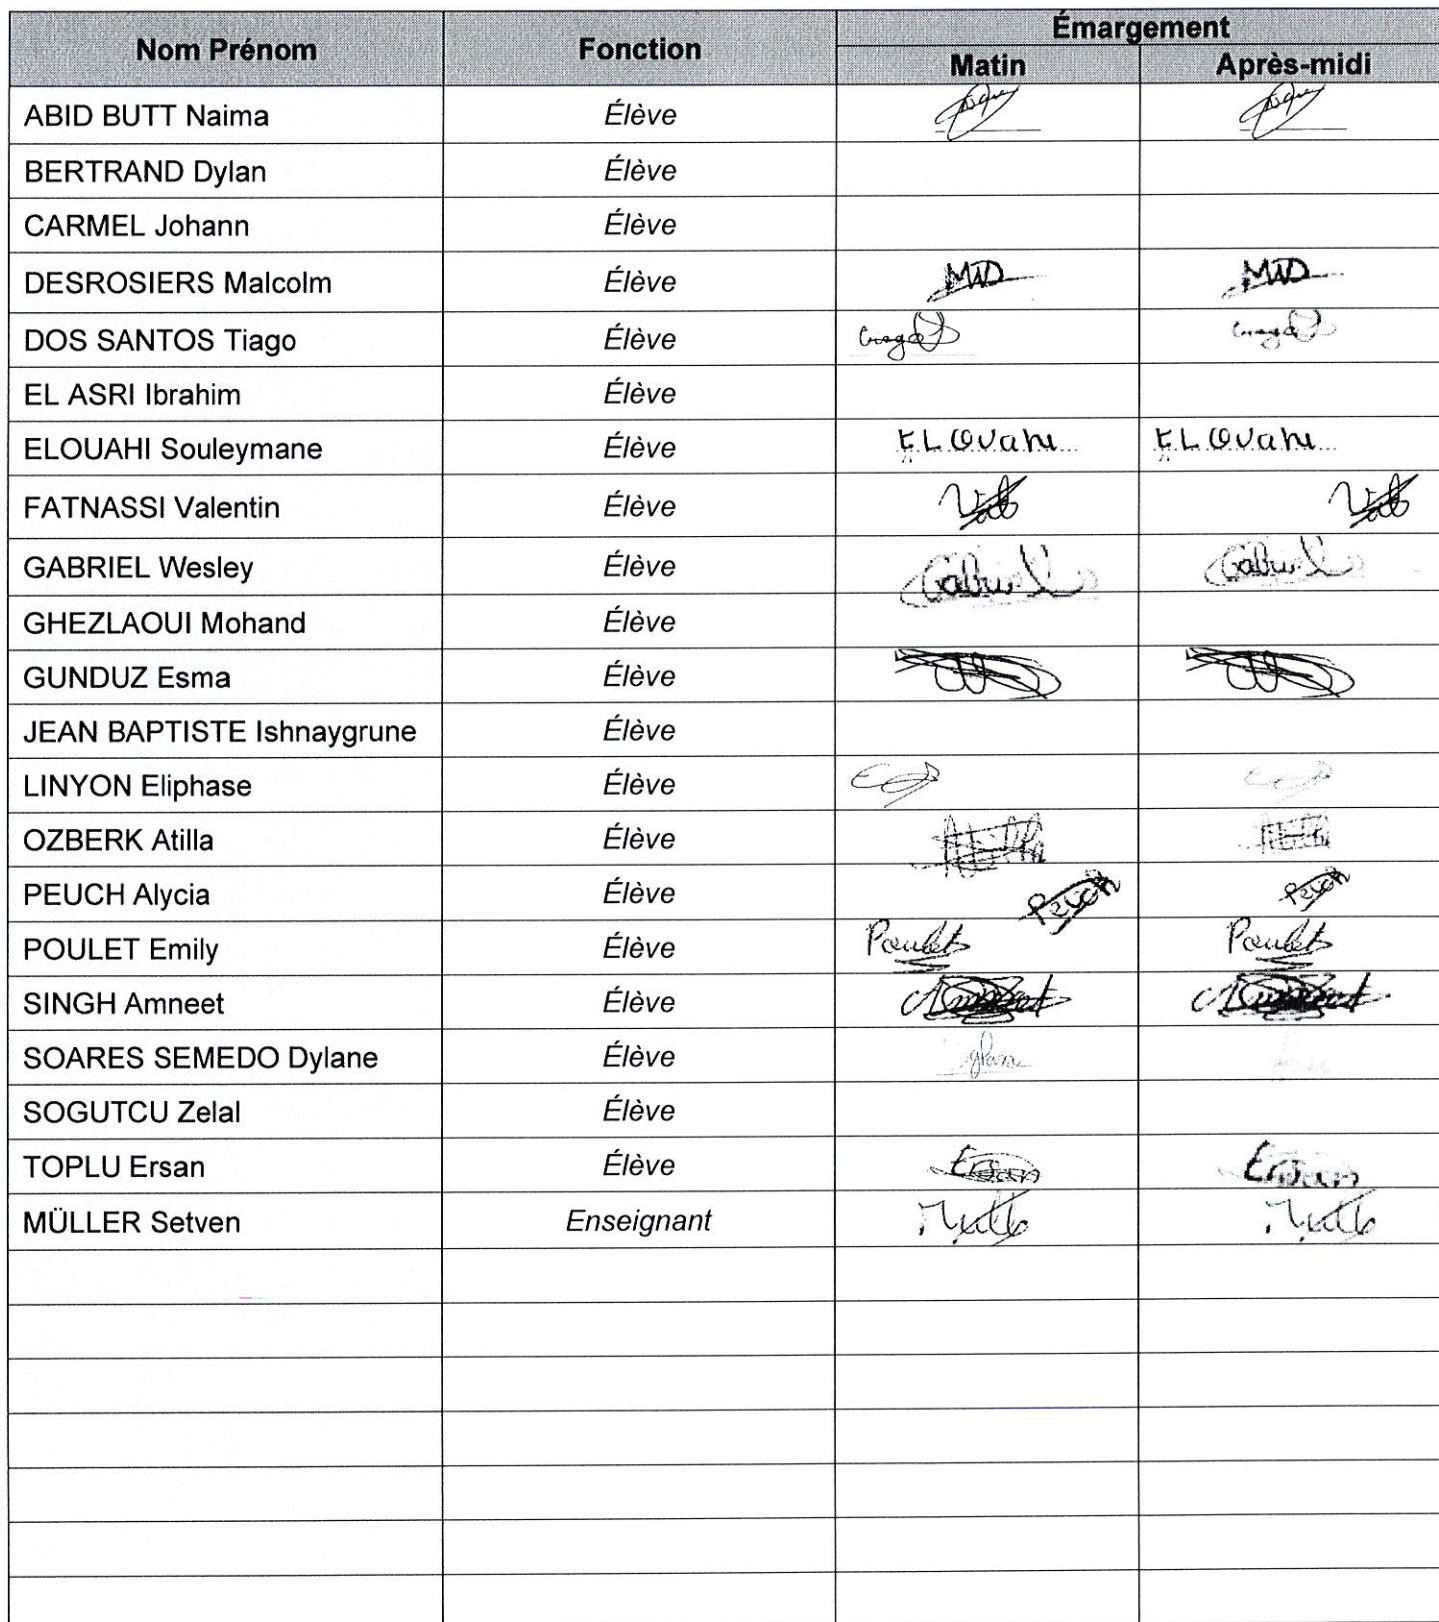 Nom Prénom Fonction Émargement
Matin Après-midi
ABID BUTT Naima Élève
BERTRAND Dylan Élève
CARMEL Johann Élève
DESROSIERS Malcolm Élève MD MD
DOS SANTOS Tiago Élève
EL ASRI Ibrahim Élève
ELOUAHI Souleymane Élève ELOUahi ELOUahi
FATNASSI Valentin Élève
GABRIEL Wesley Élève Gabriel Gabriel
GHEZLAOUI Mohand Élève
GUNDUZ Esma Élève
JEAN BAPTISTE Ishnaygrune Élève
LINYON Eliphase Élève
OZBERK Atilla Élève
PEUCH Alycia Élève
POULET Emily Élève Poulet Poulet
SINGH Amneet Élève Amneet Amneet
SOARES SEMEDO Dylane Élève
SOGUTCU Zelal Élève
TOPLU Ersan Élève Ersan Ersan
MÜLLER Setven Enseignant